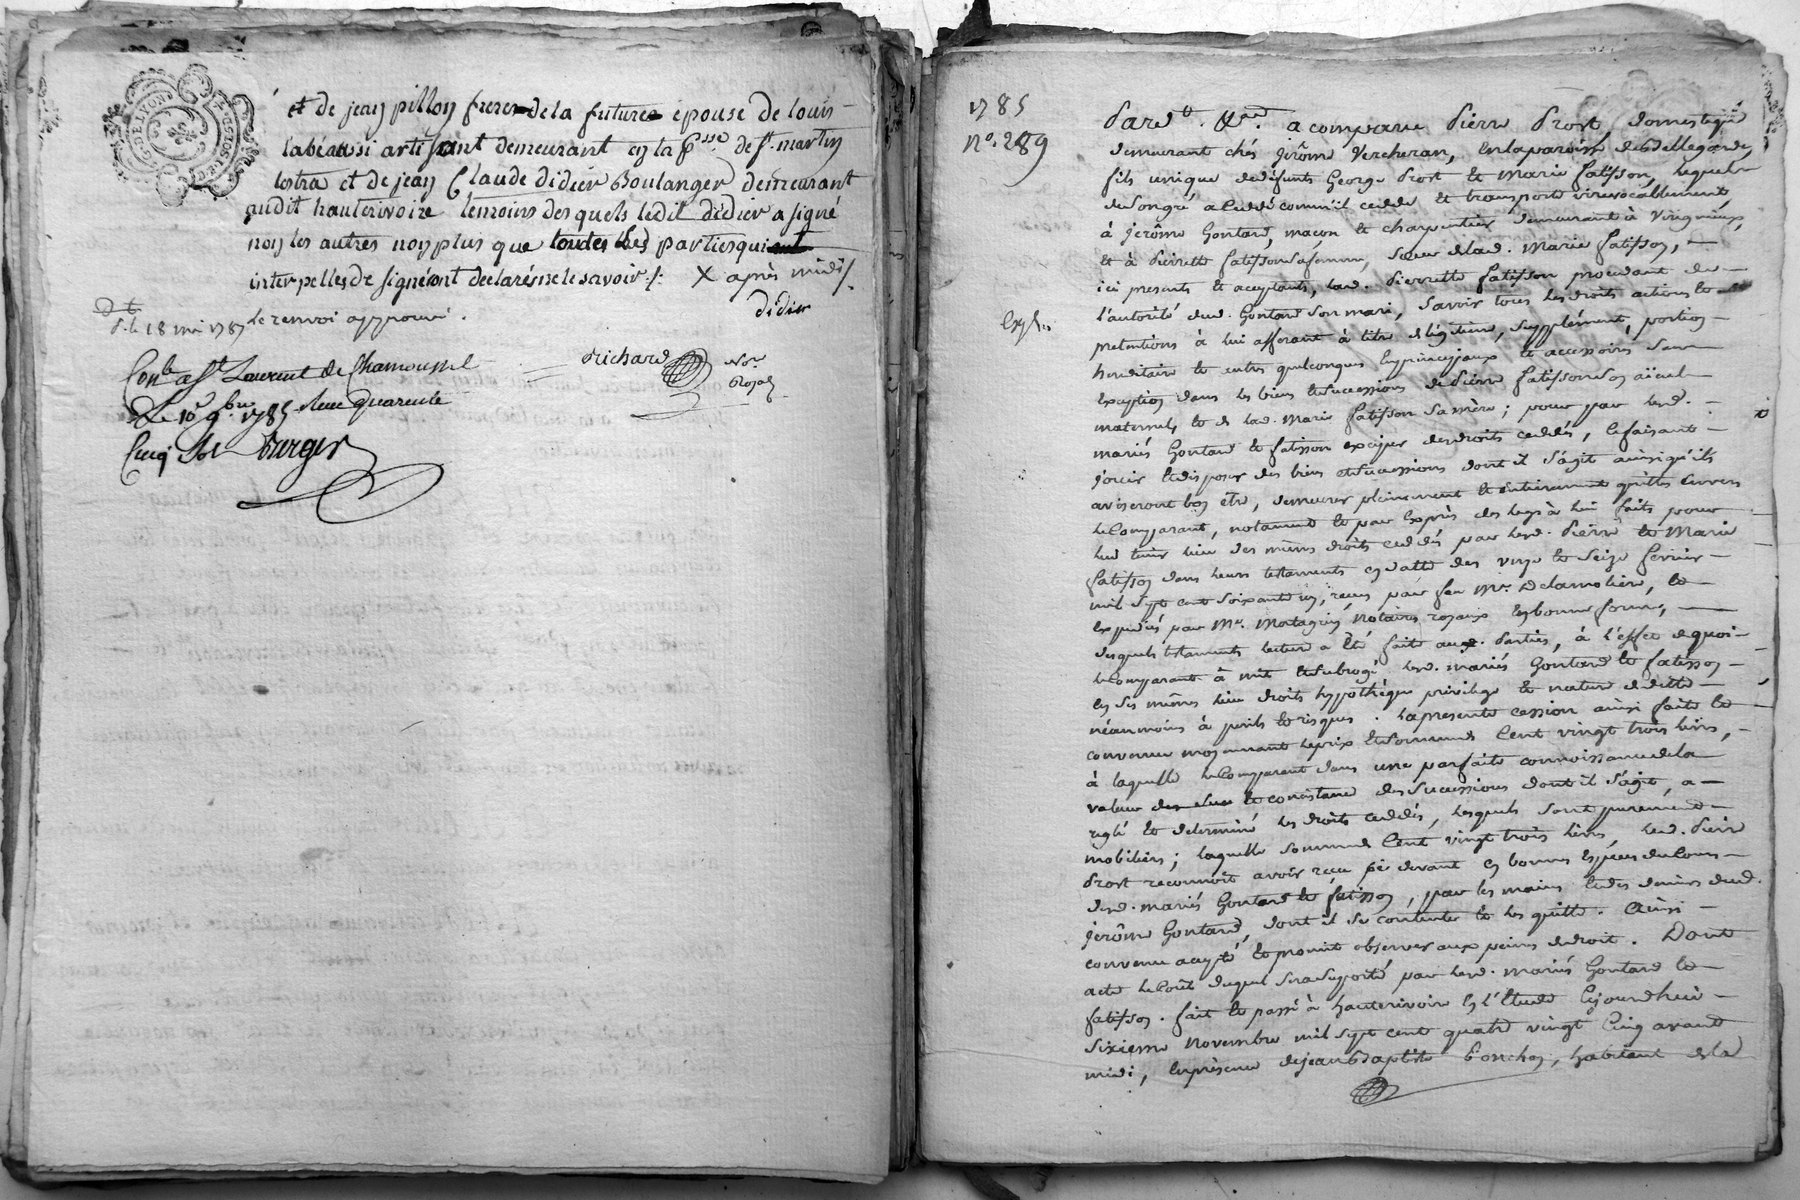 G. DE LYON
et de jean pillon freres de la future epouse de louis
labeausi artisant demeurant en la psse de st. martin
lestra et de jean Claude didier Boulanger demeurant
audit hauterivoire temoins des quels ledit didier a signé
non les autres non plus que toutes les parties qui
interpellés de signé ont declarés ne le savoir ./. X après midi /.
didier
d. le 18 mai 1787 le renvoi approuvé.
Conlé a St Laurent de Chamousset
Richard Nore
Royal
Le 10 9bre 1785 Reçu quarente
Cinq Sols Burger
1785
No. 289
Pard.t Nre. a comparu Pierre Prost, domestique
demeurant chés Jerôme Vercheran, en la paroisse de Bellegarde,
fils unique de defunts George Prost et Marie fatisson, lequel
de son gré a cedé comm'il cedde et transporte irrevocablement,
à Jerôme Gontard, maçon et charpentier demeurant à Virigneux,
et à Pierrette fatisson sa femme, soeur de lad. Marie fatisson,
ici presents et acceptants, lad. Pierrette fatisson procedant de
l'autorité dud. Gontard son mari, Savoir tous les droits actions et
pretentions à lui afferant à titre de legitime, supplément, portion
hereditaire et autres quelconques en principaux et accessoires sans
Exped.
exception dans les biens et successions de Pierre fatisson son aïeul
maternel, et de lad. Marie fatisson sa mère; pour par lesd.
mariés Gontard et fatisson exciper des droits ceddés, le faisant
jouir et disposer des biens et successions dont il s'agit ainsi qu'ils
aviseront bon etre, demeurer pleinement et entierement quittes envers
le Comparant, notament et par exprès des legs à lui faits pour
lui tenir lieu des mêmes droits ceddés par lesd. Pierre et Marie
fatisson dans leurs testaments en datte des onze et seize fevrier
mil sept cent soixante un, reçus par feu Me. Delamoliere, et
expediés par Me. Montagny, Notaires royaux en bonne forme,
desquels testaments lecture a été faite auxd. Parties, à l'effet de quoi
le Comparant à mit et subrogé lesd. mariés Gontard et fatisson
en ses mêmes lieu droits hypothèque privilege et nature de dette
néanmoins à perils et risques. La presente cession ainsi faite et
convenue moyennant le prix et somme de Cent vingt trois livres,
à laquelle le Comparant dans une parfaite connoissance de la
valeur et consistance des successions dont il s'agit, a
reglé et determiné les droits ceddés, lesquels sont purement
mobiliers; laquelle somme de Cent vingt trois livres, led. Pierre
Prost reconnoît avoir reçu ci devant en bonnes especes du cours
desd. mariés Gontard et fatisson, par les mains et des deniers dud.
Jerôme Gontard, dont il se contente et les quitte. Ainsi
convenu accepté et promit observer aux peines de droit. Dont
acte le coût duquel sera suporté par lesd. mariés Gontard et
fatisson. fait et passé à hauterivoire en l'Etude Cejourd'hui
sixieme novembre mil sept cent quatre vingt Cinq avant
midi, en presence de jean Baptiste Ponchon, habitant de la